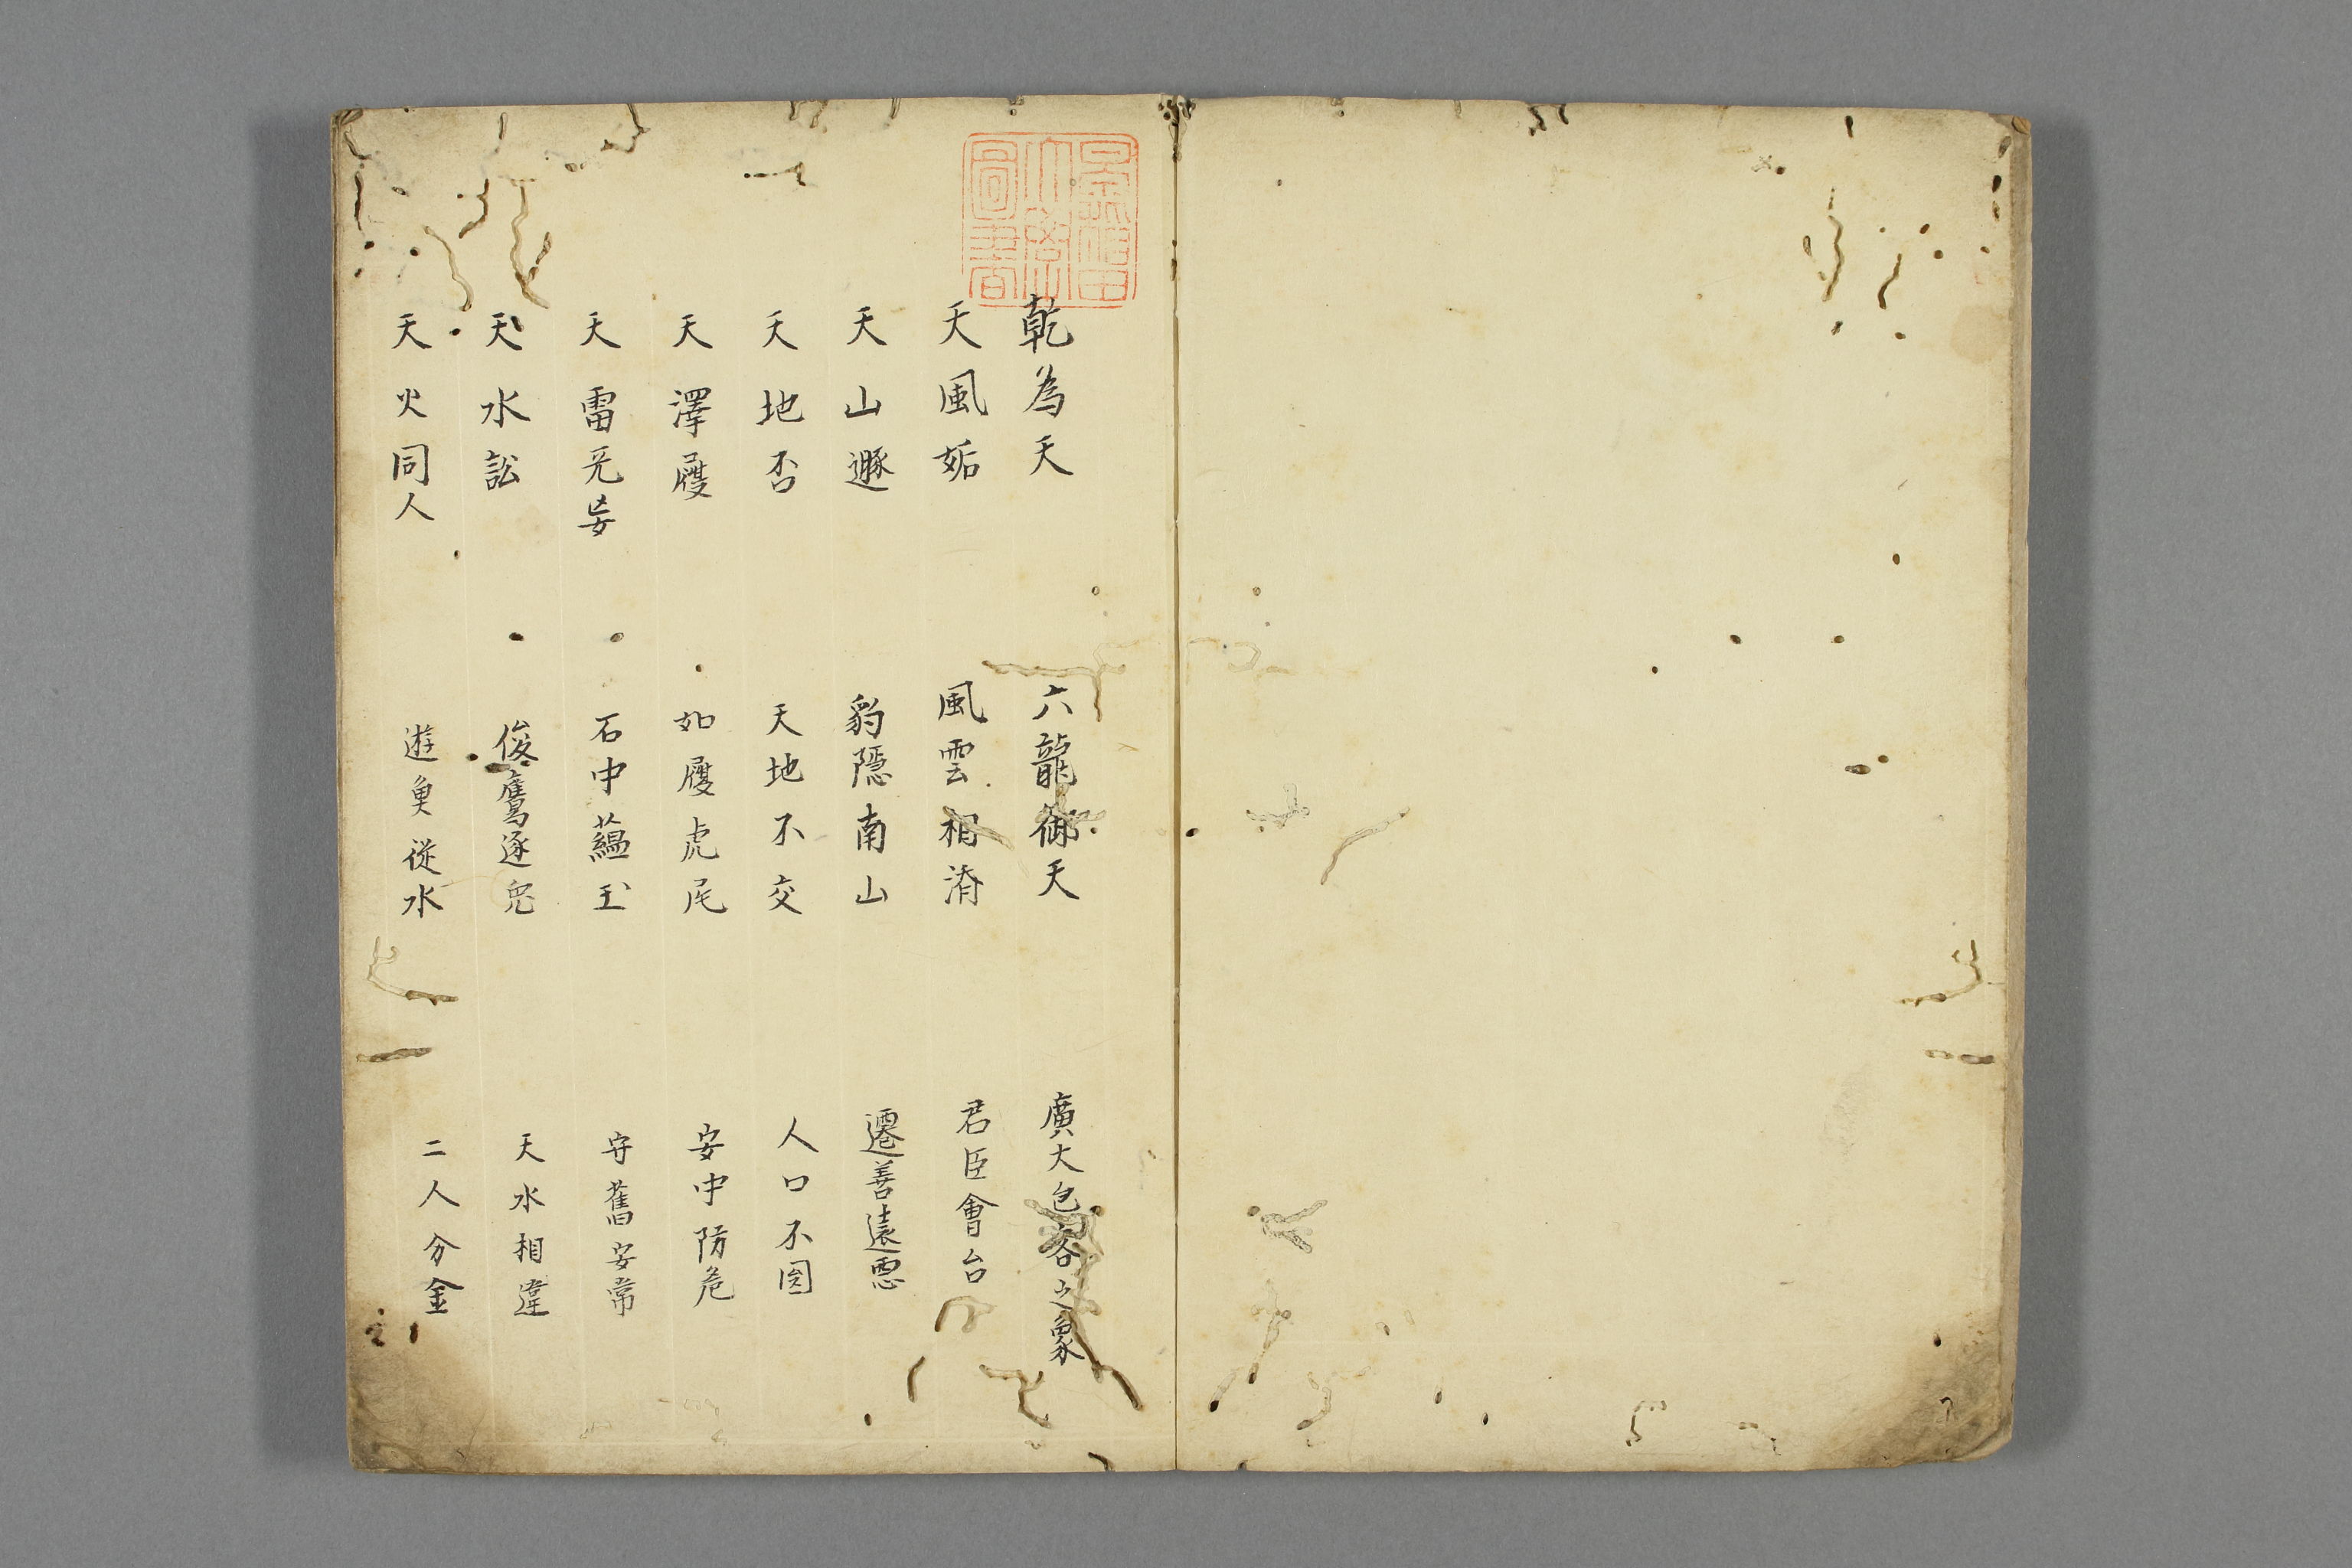 乾為天　六龍御天　廣大包容之象
天風姤　風雲相済　君臣會合
天山遯　豹隠南山　遷善遠悪
天地否　天地不交　人口不圓
天澤履　如履虎尾　安中防危
天雷无妄　石中蘊玉　守舊安常
天水訟　俊鷹逐兎　天水相違
天火同人　遊魚従水　二人分金